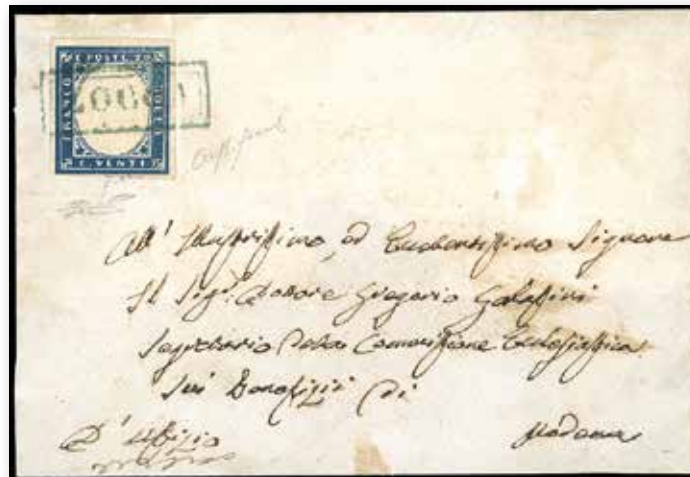 C. POSTE 20
FRANCO BOLLO
C. VENTI
ZOCCA
All' Illustrissimo, ed Eccellentissimo Signore
Il Sigr. Dottore Gregorio
Segretario della Commissione Ecclesiastica
dei Benefizi di
Modena
D'Ufizio